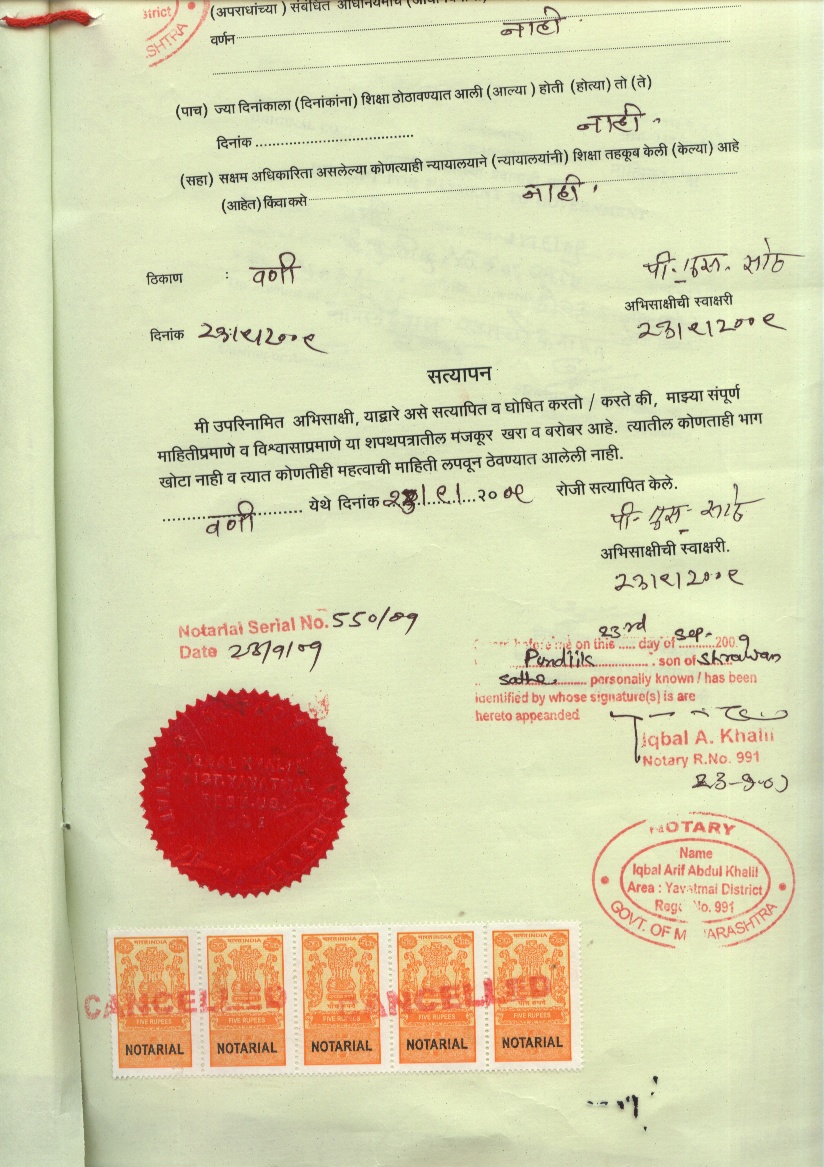 strict
SHTRA
(अपराधांच्या ) संबंधित
वर्णन नाही
(पाच) ज्या दिनांकाला (दिनांकांना) शिक्षा ठोठावण्यात आली (आल्या ) होती (होत्या) तो (ते)
दिनांक .................................... नाही.
(सहा) सक्षम अधिकारिता असलेल्या कोणत्याही न्यायालयाने (न्यायालयांनी) शिक्षा तहकूब केली (केल्या) आहे
(आहेत) किंवा कसे नाही.
ठिकाण : वणी
पी. एस. साठे
अभिसाक्षीची स्वाक्षरी
दिनांक २३।९।२००९
२३।९।२००९
सत्यापन
मी उपरिनामित अभिसाक्षी, याद्वारे असे सत्यापित व घोषित करतो / करते की, माझ्या संपूर्ण
माहितीप्रमाणे व विश्वासाप्रमाणे या शपथपत्रातील मजकूर खरा व बरोबर आहे. त्यातील कोणताही भाग
खोटा नाही व त्यात कोणतीही महत्वाची माहिती लपवून ठेवण्यात आलेली नाही.
वणी येथे दिनांक २३।९।...२००९ रोजी सत्यापित केले.
पी. एस. साठे
अभिसाक्षीची स्वाक्षरी.
२३।९।२००९
Notarial Serial No. 550/09
Date 23/9/09
before me on this 23rd day of Sep. 2009
Pundlik son of Shrawan
Sathe personally known / has been
identified by whose signature(s) is are
hereto appeanded
Iqbal A. Khalil
Notary R.No. 991
23-9-09
IQBAL KHALIL
DIST. YAVATMAL
NOTARY
Name
Iqbal Arif Abdul Khalil
Area : Yavatmal District
Regd No. 991
GOVT. OF MAHARASHTRA
भारत INDIA भारत INDIA भारत INDIA भारत INDIA भारत INDIA
CANCELLED CANCELLED
पाँच रुपये
FIVE RUPEES FIVE RUPEES FIVE RUPEES FIVE RUPEES FIVE RUPEES
NOTARIAL NOTARIAL NOTARIAL NOTARIAL NOTARIAL